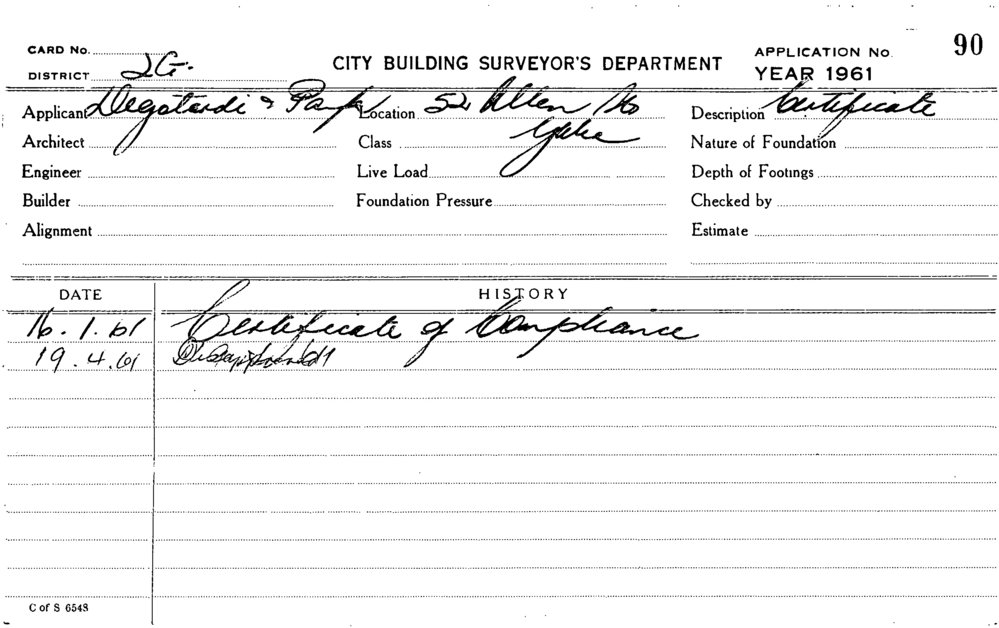 CARD No.
DISTRICT 2G.
CITY BUILDING SURVEYOR'S DEPARTMENT
APPLICATION No. 90
YEAR 1961
Applicant Degotardi & Location 52 Allen St Description Certificate
Architect Class Glebe Nature of Foundation
Engineer Live Load Depth of Footings
Builder Foundation Pressure Checked by
Alignment Estimate
DATE HISTORY
16.1.61 Certificate of Compliance
19.4.61 Disapproved
C of S 6548